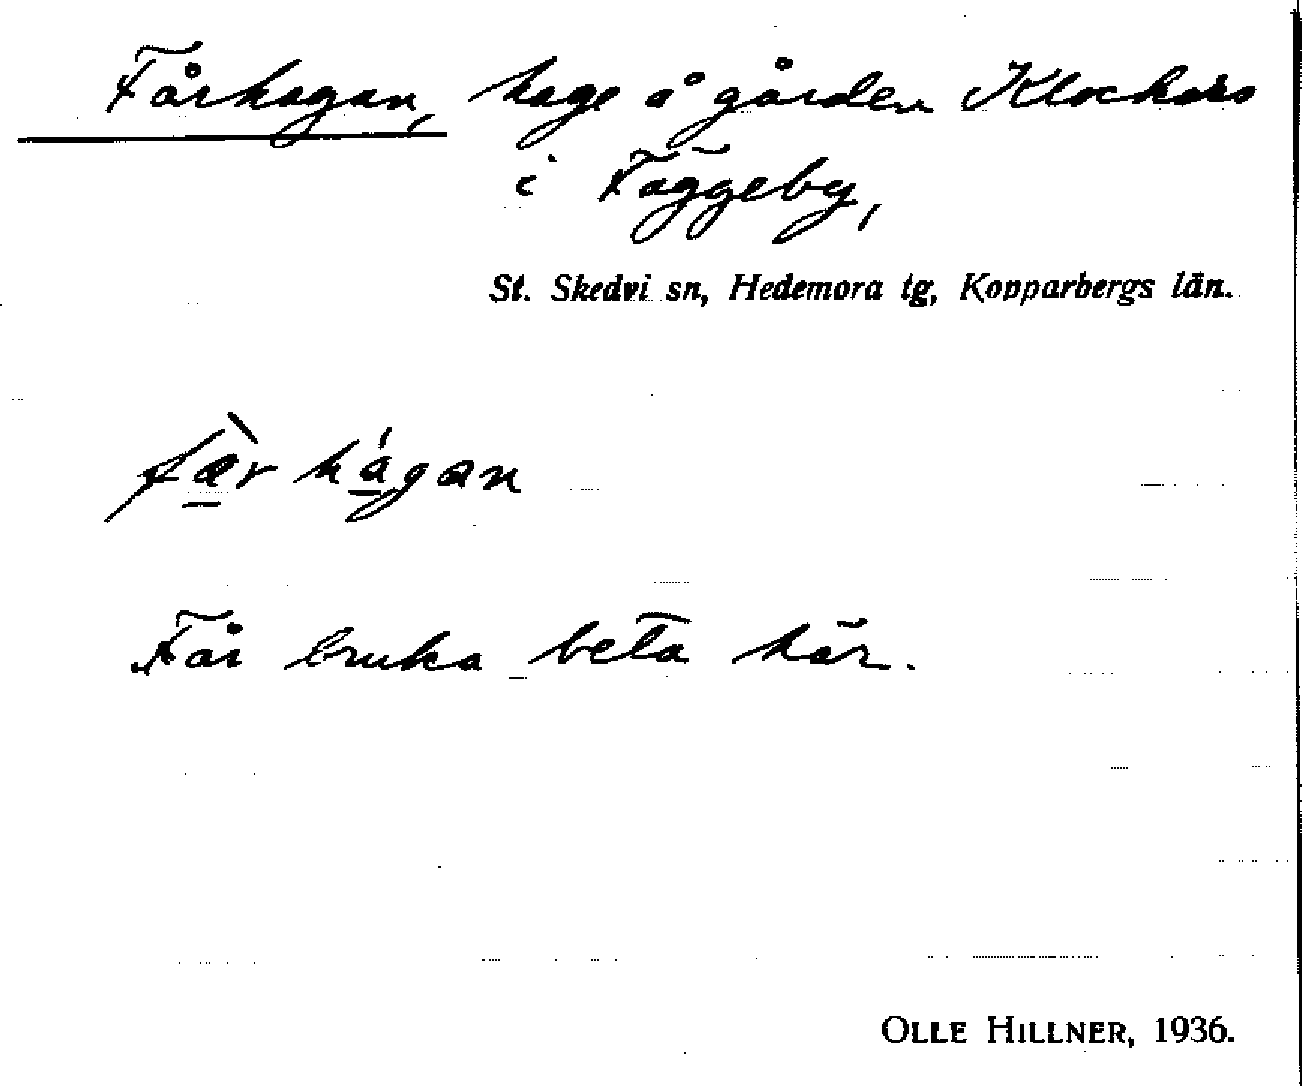 Fårhagan, hage å gården Klockars
i Fäggeby,
St. Skedvi sn, Hedemora tg, Kopparbergs län.
fæ̀r hágan
Får bruka beta här.
OLLE HILLNER, 1936.